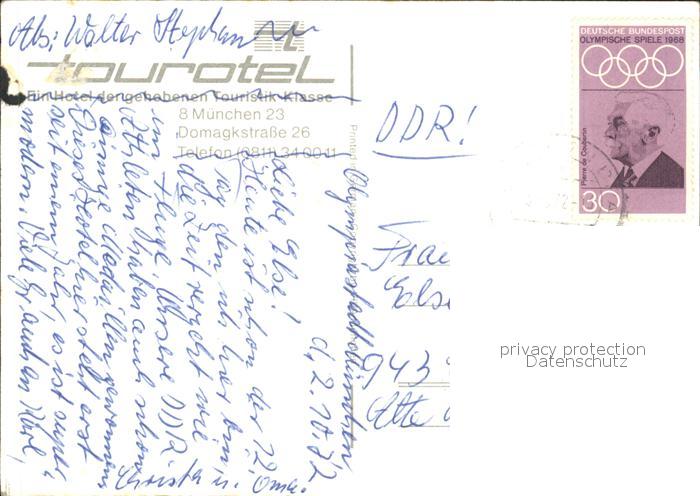 Abs: Walter Stephan
tourotel
Ein Hotel der gehobenen Touristik-Klasse
8 München 23
Domagkstraße 26
Telefon (0811) 34 00 11
Printed
DEUTSCHE BUNDESPOST
OLYMPISCHE SPIELE 1968
Pierre de Coubertin
30
DDR!
Frau
Else
943
Olympiastadt München
d, 2.10.72
Liebe Else!
Heute ist schon der 12.
Tag den ich hier bin,
die Zeit vergeht wie
im Fluge. Unsere DDR
Athleten haben auch schon
einige Medaillen gewonnen.
Dieses Hotel hier steht erst
seit einem Jahr, es ist super
modern. Viele Gr. auch an Karl,
Christa u. Oma.
privacy protection
Datenschutz